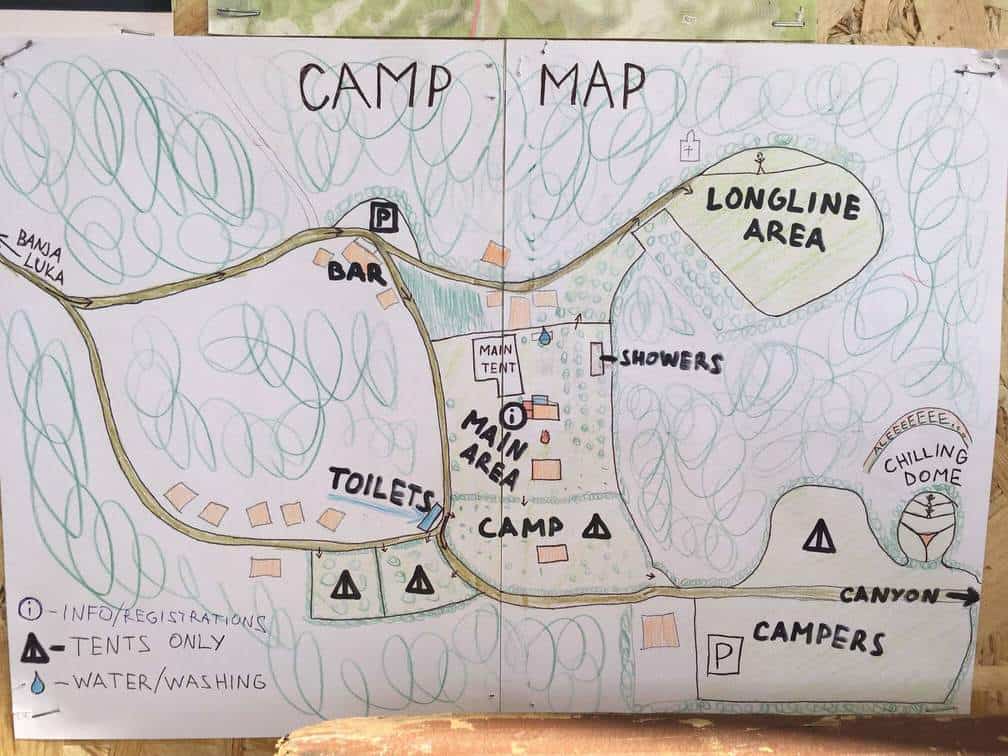 CAMP MAP
P
BANJA
LUKA
BAR
LONGLINE
AREA
MAIN
TENT
SHOWERS
i
MAIN
AREA
ALEEEEEEE...
CHILLING
DOME
TOILETS
CAMP
CANYON
CAMPERS
P
i - INFO/REGISTRATIONS
- TENTS ONLY
- WATER/WASHING